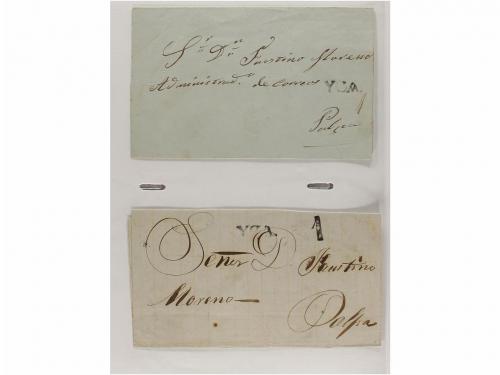 Sr. Dn. Faustino Moreno
Administrador. de Correos
YCA.
Palpa
YZA 1
Señor D Faustino
Moreno
Palpa